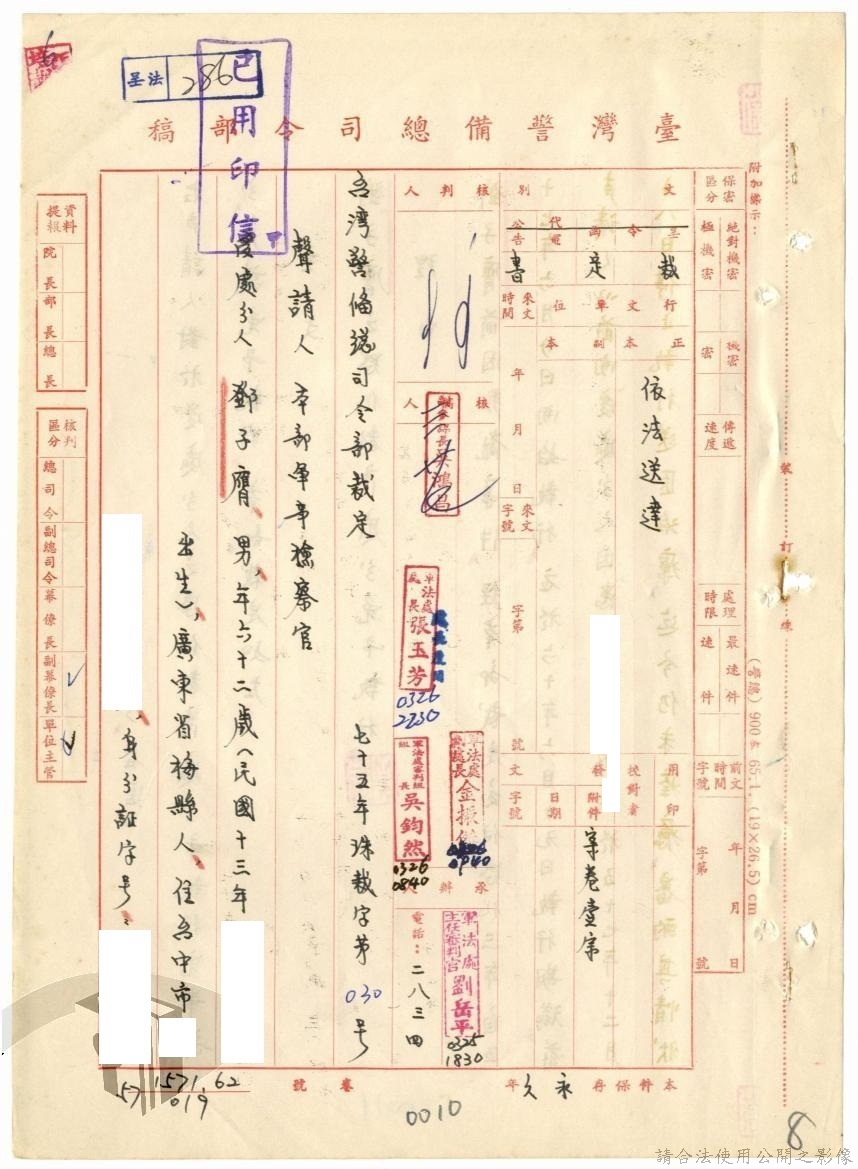 呈法 286
已用印信
臺灣警備總司令部稿
附加標示：
保密區分
絕對機密
極機密
機密
密
傳遞速度
處理時限
最速件
速件
前文時間字號
年 月 日
字第 號
文別
呈
令
函
代電
公告
裁定書
行文單位
正本
副本
依法送達
來文時間
年 月 日
來文字號
字第 號
用印
校對者
發文
附件
日期
字號
案卷壹宗
核判人
核人
參謀長吳鴻昌
軍法處處長張玉芳
0326
2230
軍法處副處長金振
0326
0940
軍法處審判組組長吳鈞然
0326
0840
承辦人
軍法處主任審判官劉岳平
0325
1830
電話：二八三四
台湾警备总司令部裁定
七十五年珠裁字第030号
聲請人 本部軍事檢察官
受處分人 鄧子膺、男、年六十二歲（民國十三年
出生），廣東省梅縣人、住台中市
、身分証字号：
資料提報
院長
部長
總長
核判區分
總司令
副總司令
幕僚長
副幕僚長
單位主管
裝 訂 線
（警總）900本 65.1.（19×26.5）cm
本件保存永久年
卷號
1571.62
57 019
0010
8
請合法使用公開之影像